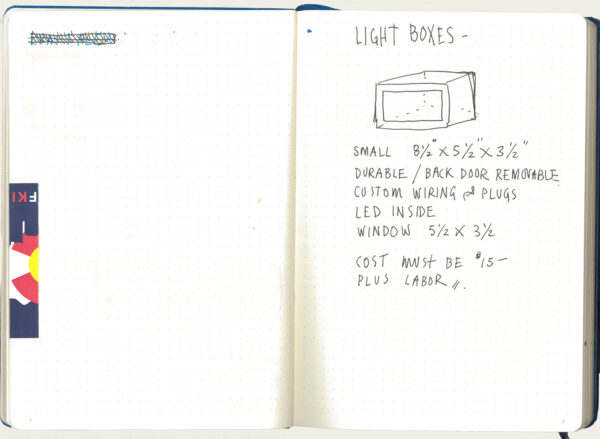 FKI
LIGHT BOXES -
SMALL 8½" X 5½" X 3½"
DURABLE / BACK DOOR REMOVABLE
CUSTOM WIRING & PLUGS
LED INSIDE
WINDOW 5½ X 3½
COST MUST BE $15-
PLUS LABOR